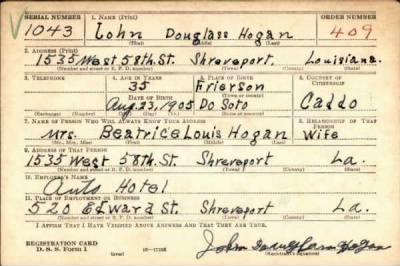 SERIAL NUMBER 1. NAME (Print) ORDER NUMBER
V 1043 John Douglass Hogan 409
(First) (Middle) (Last)
2. ADDRESS (Print)
1535 West 58th. St. Shreveport, Louisiana.
(Number and street or R. F. D. number) (Town) (County) (State)
3. TELEPHONE 4. AGE IN YEARS 5. PLACE OF BIRTH 6. COUNTRY OF CITIZENSHIP
35 Frierson
DATE OF BIRTH (Town or county)
Aug. 23, 1905 De Soto Caddo
(Exchange) (Number) (Mo.) (Day) (Yr.) (State or country)
7. NAME OF PERSON WHO WILL ALWAYS KNOW YOUR ADDRESS 8. RELATIONSHIP OF THAT PERSON
Mrs. Beatrice Louis Hogan Wife
(Mr., Mrs., Miss) (First) (Middle) (Last)
9. ADDRESS OF THAT PERSON
1535 West 58th St. Shreveport La.
(Number and street or R. F. D. number) (Town) (County) (State)
10. EMPLOYER'S NAME
Auto Hotel
11. PLACE OF EMPLOYMENT OR BUSINESS
520 Edward St. Shreveport La.
(Number and street or R. F. D. number) (Town) (County) (State)
I AFFIRM THAT I HAVE VERIFIED ABOVE ANSWERS AND THAT THEY ARE TRUE.
REGISTRATION CARD
D. S. S. Form 1 (over) 16—17105 John Douglass Hogan
(Registrant's Signature)